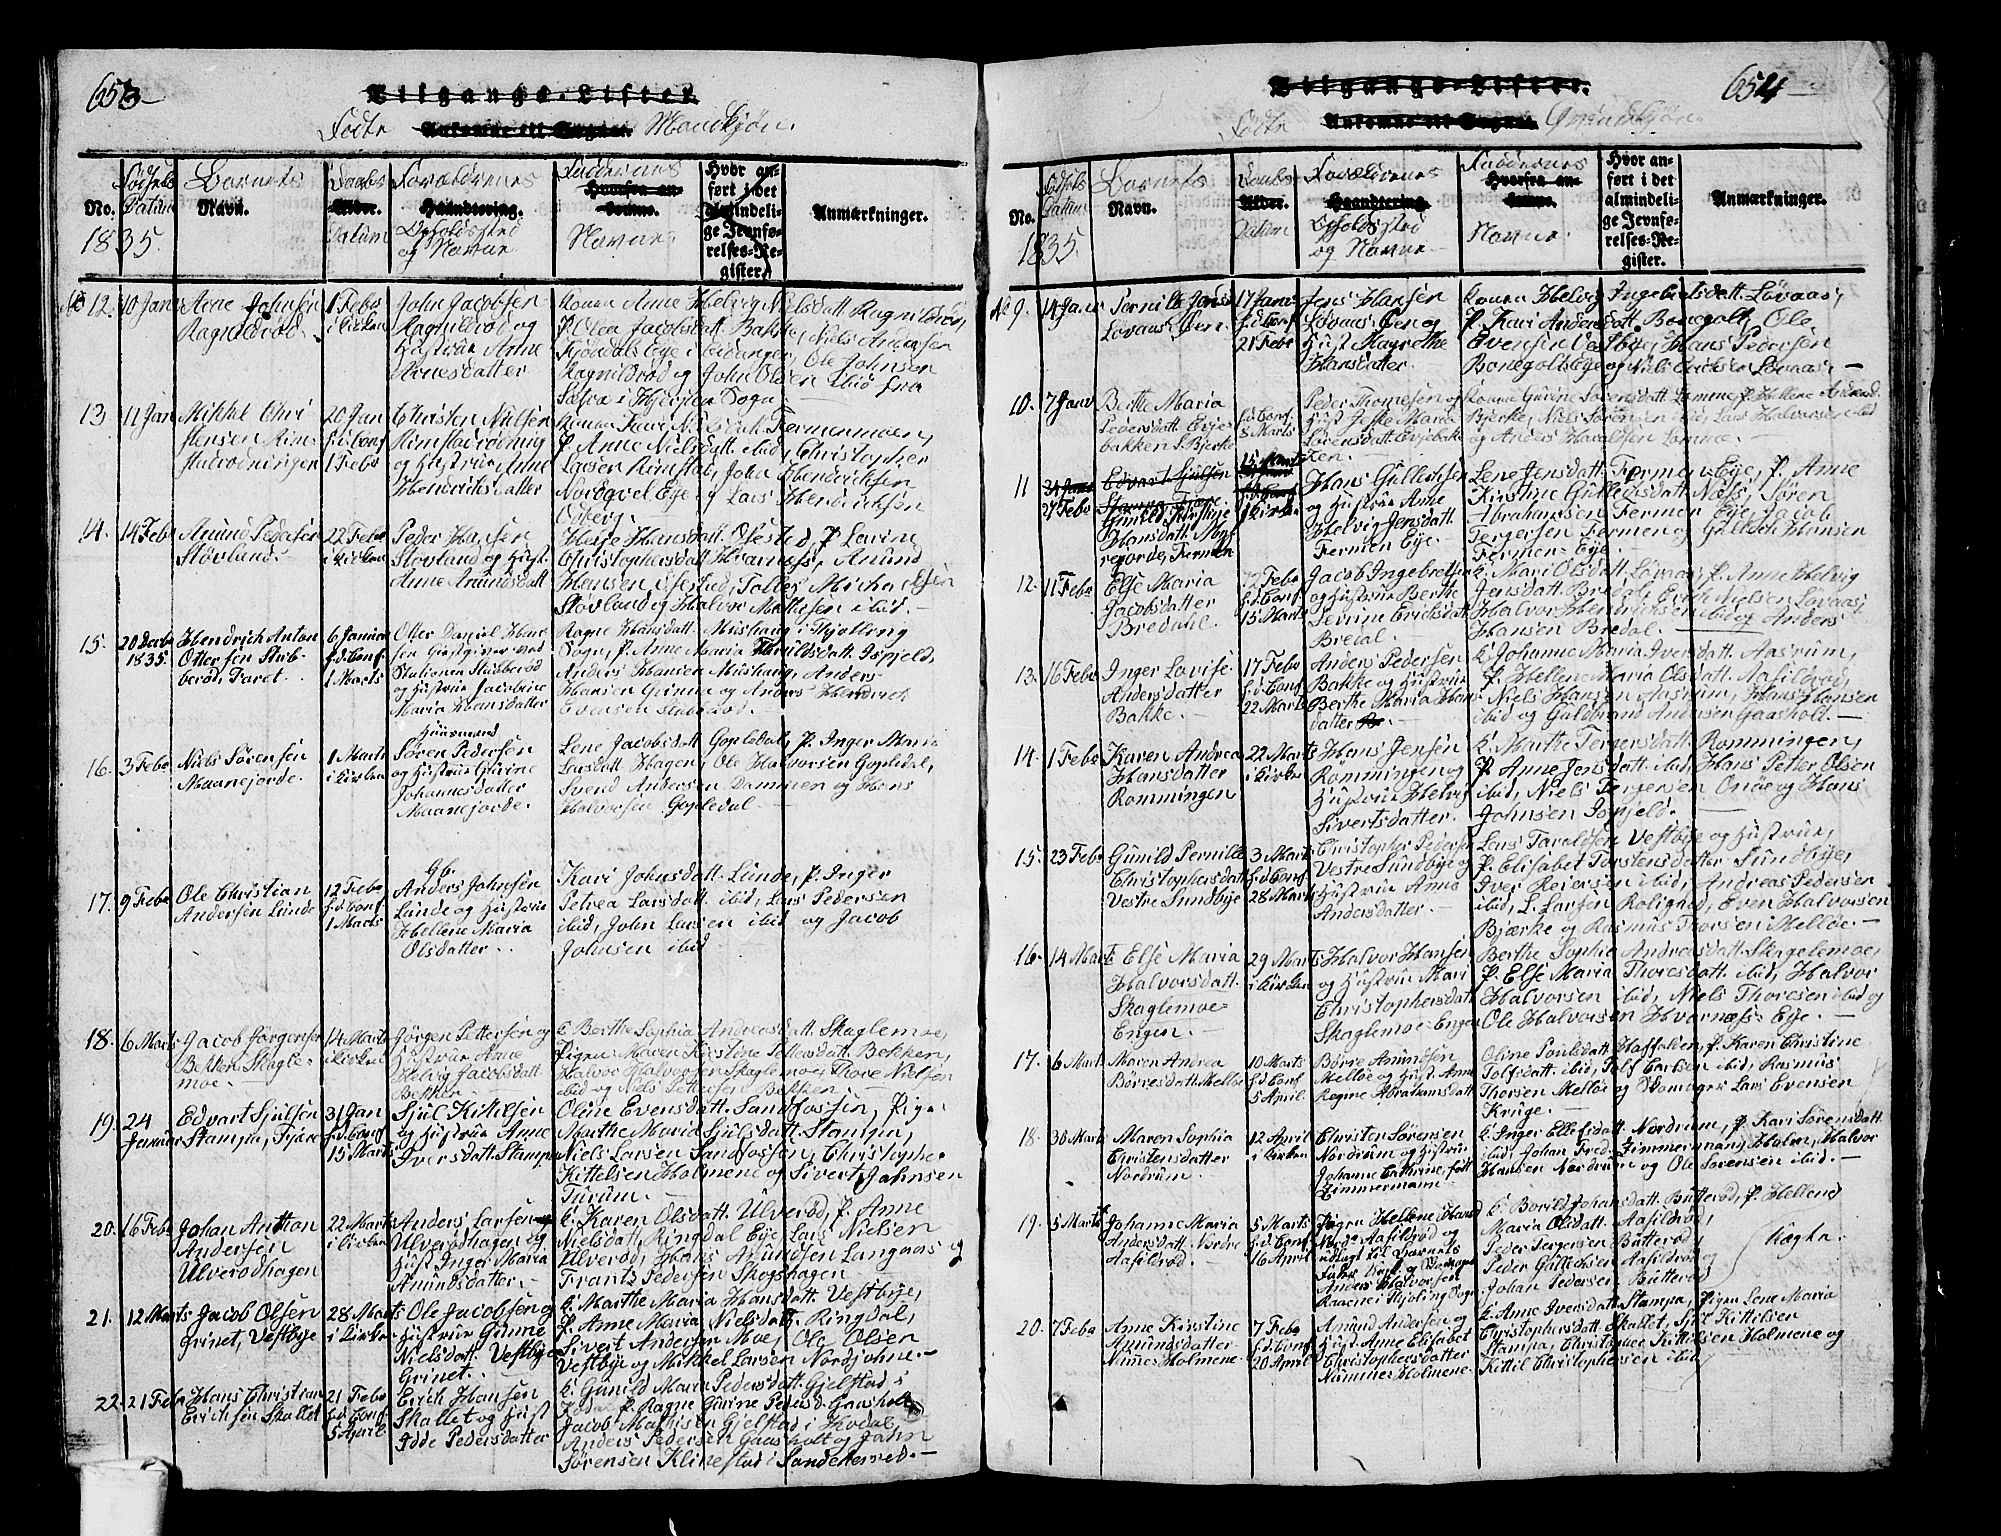 653
Tilgangs-Lister.
Fødte Ankomne til Sognet. Mandkjøn.
No.
Fødsels Datum
Barnets Navn.
Daabs Alder. Datum
Forældrenes Haandtering. Opholdssted og Navne
Faddernes Hvorfra ankomne. Navne.
Hvor anført i det almindelige Jevnførelses-Register.
Anmærkninger.
1835.
12. 10 Jan Arne Johnsen Ragnildrød.
1 Febr i Kirken
John Jacobsen Ragnildrød og Hustrue Anne Monesdatter
Konen Anne Helvig Nielsdatt. Ragnildrød,
P. Olea Jacobsdatt. Bakke, Niels Andersen
Eje i Eidanger, Ole Johnsen
Ragnildrød og John Olsen ibid fra
Sogn
13 11 Jan Mikkel Christensen
20 Jan h.d. Conf 1 Febr
Christen Nielsen
og Hustrue Anne Hendrichsdatter
P. Anne Nielsdatt. ibid, Christopher
Larsen Rimstad, John Hendrichsen
Eje og Lars Hendrichsen
14 Febr Amund Pedersen Støvland
22 Febr i Kirken
Peder Hansen Støvland og Hust. Anne Amundsdatt
Hansdatt. Ofested, P. Lovine
Christophersdatt Hvarnæss, Amund
Hansen Ofestad, Tolles Michaelsen
Støvland og Halvor Mathisen ibid.
15. 20 Decbr 1835. Hendrich Anton Ottersen Stubberød, Faret.
6 Januar h.d. Conf 1 Marts
Otter Daniel Hansen Gastgiver ved Stationen Stubberød og Hustrue Jacobine Maria Hansdatter
Ragne Hansdatt. Mishaug i Thjølling
Sogn, P. Anne Maria Ispjeld,
Anders Hansen Mishaug, Anders
Hansen Grinna og Anders
Evensen Stubberød.
16. 3 Febr Niels Sørensen Maanejorde.
1 Marts i Kirken
Huusmand Søren Pedersen og Hustrue Gurine Johannesdatter Maanejorde.
Lene Jacobsdatt Gopledal, P. Inger Maria
Larsdatt Hagen, Ole Halvorsen Gopledal,
Svend Andersen Dammen og Hans
Halvorsen Gopledal
17. 9 Febr Ole Christian Andersen Lunde
12 Febr h.d. Conf 1 Marts
Gb. Anders Johnsen Lunde og Hustrue Hellene Maria Olsdatter.
Kari Johnsdatt. Lunde, P. Inger
Petrea Larsdatt. ibid, Lars Pedersen
ibid, John Larsen ibid og Jacob
Johnsen ibid
18. 6 Marts Jacob Jørgensen Bekken Skaglemoe.
14 Marts i Kirken
Jørgen Pettersen og Hustrue Anne Helvig Jacobsdatt Bekken
k. Berthe Sophia Andreasdatt. Skaglemoe,
Pigen Maren Kirstine Tollersdatt. Bekken,
Halvor Halvorsen Skaglemoe, Thore Nielsen
ibid og Niels Pettersen Bekken.
19. 24 Januar Edvart Sjulsen Stampa, Fjære
31 Jan h.d. Conf 15 Marts
Sjul Kittilsen og Hustrue Anne Iversdatt. Stampa
Oline Evensdatt. Sandfossen, Pigen
Marthe Maria Sjulsdatt. Stampa,
Niels Larsen Sandfossen, Christopher
Kittelsen Holmene og Sivert Johnsen
Furum.
20. 16 Febr Johan Antton Andersen Ulverødhagen
22 Marts i Kirken
Anders Larsen Ulverødhagen og Hust Inger Maria Amundsdatter.
k. Karen Olsdatt. Ulverød, P. Anne
Nielsdatt. Ringdal Eje, Lars Nielsen
Ulverød, Hans Amundsen Langaas og
Frants Pedersen Skogshagen
21. 12 Marts Jacob Olsen Grinet, Vestbye
28 Marts i Kirken
Ole Jacobsen og Hustrue Gunne Nielsdatt. Vestbye Grinet.
k. Marthe Maria Hansdatt. Vestbye,
P. Anne Maria Nielsdatt. Ringdal,
Sivert Andersen Moe, Ole Olsen
Vestbye og Mikkel Larsen Nordjohne.
22. 21 Febr Hans Christian Erichsen Skallet
21 Febr h.d. Conf 5 April
Erich Hansen Skallet og Hust Idde Pedersdatter
k. Gunild Maria Pedersdatt. Gjelstad i
Kodal, P. Ragne Gurine Pedersd. Gaasholt
Jacob Mathisen Gjelstad i Kodal,
Anders Pedersen Gaasholt og John
Sørensen Klinestad i Sandeherred.
654
Tilgangs-Lister.
Fødte Ankomne til Sognet. Qvindekjøn
No.
Fødsels Datum
Barnets Navn.
Daabs Alder. Datum
Forældrenes Haandtering. Opholdssted og Navne
Faddernes Hvorfra ankomne. Navne.
Hvor anført i det almindelige Jevnførelses-Register.
Anmærkninger.
1835.
No 9. 14 Jan Pernille Jensd Løvaas Øen.
17 Jan h.d. Conf 21 Febr
Jens Hansen Løvaas Øen og Hust Magrethe Hansdatter.
Konen Helvig Ingebretsdatt. Løvaas,
P. Kari Andersdatt. Bonegolt, Ole
Evensen Vestbye, Hans Pedersen
Bonegolt Eje og Niels Erichsen Løvaas.
10. 7 Janv Berthe Maria Pedersdatt. Evjebakken, Bjerke
h.d. Conf 8 Marts
Peder Thomesen og Hust Maria Lorensdatt Evjebakken.
Konen Gurine Sørensdatt. Lamme, P. Hellene Andersd
Bjerke, Niels Sørensen ibid, Lars Halvorsen ibid
og Anders Haraldsen Lamme.
11 31 Janv Edvart Sjulsen Stampa Fjære
15 Marts
27 Febr Gunild Kirstine Hansdatt.
i Kirken
Hans Gullechsen og Hustrue Anne Helvig Jensdatt. Fermen Eye.
Lene Jensdatt. Fermen Eye, P. Anne
Kirstine Gullechsdatt. Næss, Søren
Abrahamsen Fermen Eye, Jacob
Tergersen Fermen og Gullech Hansen
Fermen Eye.
12. 11 Febr Else Maria Jacobsdatter Bredahl.
12 Febr h.d. Conf 15 Marts
Jacob Ingebretsen og Hustrue Berthe Severine Erichsdatt Bredal.
k. Mari Olsdatt. Løvaas, P. Anne Helvig
Jensdatt. Bredal, Erich Nielsen Løvaas,
Halvor Hendrichsen ibid og Anders
Hansen Bredal.
13. 16 Febr Inger Lovise Andersdatter Bakke.
17 Febr h.d. Conf 22 Marts
Anders Pedersen Bakke og Hustrue Berthe Maria Hansdatter.
k. Johanne Maria Iversdatt. Aasrum,
P. Hellene Maria Olsdatt. Aasildrød,
Niels Hansen Aasrum, Hans Hansen
ibid og Guldbrand Andersen Gaasholt.
14. 1 Febr Karen Andrea Hansdatter Rømmingen
22 Marts i Kirken
Hans Jensen Rømmingen og Hustrue Helvig Sivertsdatter.
k. Marthe Tergersdatt. Rømmingen,
P. Anne Jensdatt. ibid, Hans Petter Olsen
ibid, Niels Tergersen Onøe og Hans
Johnsen Ispjeld.
15. 23 Febr Gunild Pernille Christophersdatt Vestre Sundbye
3 Marts h.d. Conf 28 Marts
Christopher Pedersen Vestre Sundbye og Hustrue Anne Andersdatter.
Lens Taraldsen Vestbye og Hustrue,
P. Elisabet Torstensdatter Sundbye,
Iver Reiersen ibid, Andreas Pedersen
ibid, L. Larsen Rolighed, Even Halvorsen
Bjærke og Rasmus Thorsen Melløe.
16. 14 Marts Else Maria Halvorsdatt. Skaglemoe Engen.
29 Marts i Kirken
Halvor Hansen og Hustrue Mari Christophersdatt Skaglemoe Engen
Berthe Sophie Andreasdatt. Skaglemoe,
P. Else Maria Thoresdatt. ibid, Halvor
Halvorsen ibid, Niels Thoresen ibid og
Ole Halvorsen Hvarnæss Eye.
17. 6 Marts Maren Andrea Børresdatt. Melløe
10 Marts h.d. Conf 5 April
Børre Amundsen Melløe og Hust Anne Regine Abrahamsdatt
Oline Poulsdatt. Haffalden, P. Karen Christine
Tolfsdatt. ibid, Tolf Carlsen ibid, Rasmus
Thorsen Melløe og Skomager Lars Evensen
Kruge.
18. 30 Marts Maren Sophia Christensdatter Nordrum.
12 April i Kirken
Christen Sørensen Nordrum og Hustrue Johanne Cathrine født Zimmermann.
k. Inger Ellefsdatt. Nordrum, P. Kari Sørensdatt.
ibid, Johan Fred. Zimmermann, Holm, Halvor
Hansen Nordrum og Ole Sørensen ibid.
19. 5 Marts Johanne Maria Andersdatt. Nordre Aasildrød.
5 Marts h.d. Conf 16 April
Pigen Hellene Hansd Norge Aasildrød og udlagt til Barnets Fader Anders Halvorsen Raaene i Thjøling Sogn
k. Borild Johansdatt. Butterød, P. Hellene
Maria Olsdatt. Aasildrød,
Peder Tergersen Butterød,
Peder Gullechsen Aasildrød og
Johan Pedersen Butterød
Uægte.
20. 7 Febr Anne Kirstine Amundsdatt. Numes Holmene.
7 Febr h.d. Conf 20 April
Amund Andersen og Hust Anne Elisabet Christophersdatter Nummer Holmene.
k. Anne Iversdatt. Stampa, Pigen Lene Maria
Christophersdatt. Skallet, Sjul Kittilsen
Stampa, Christopher Kittilsen Holmene og
Kittil Christophersen ibid